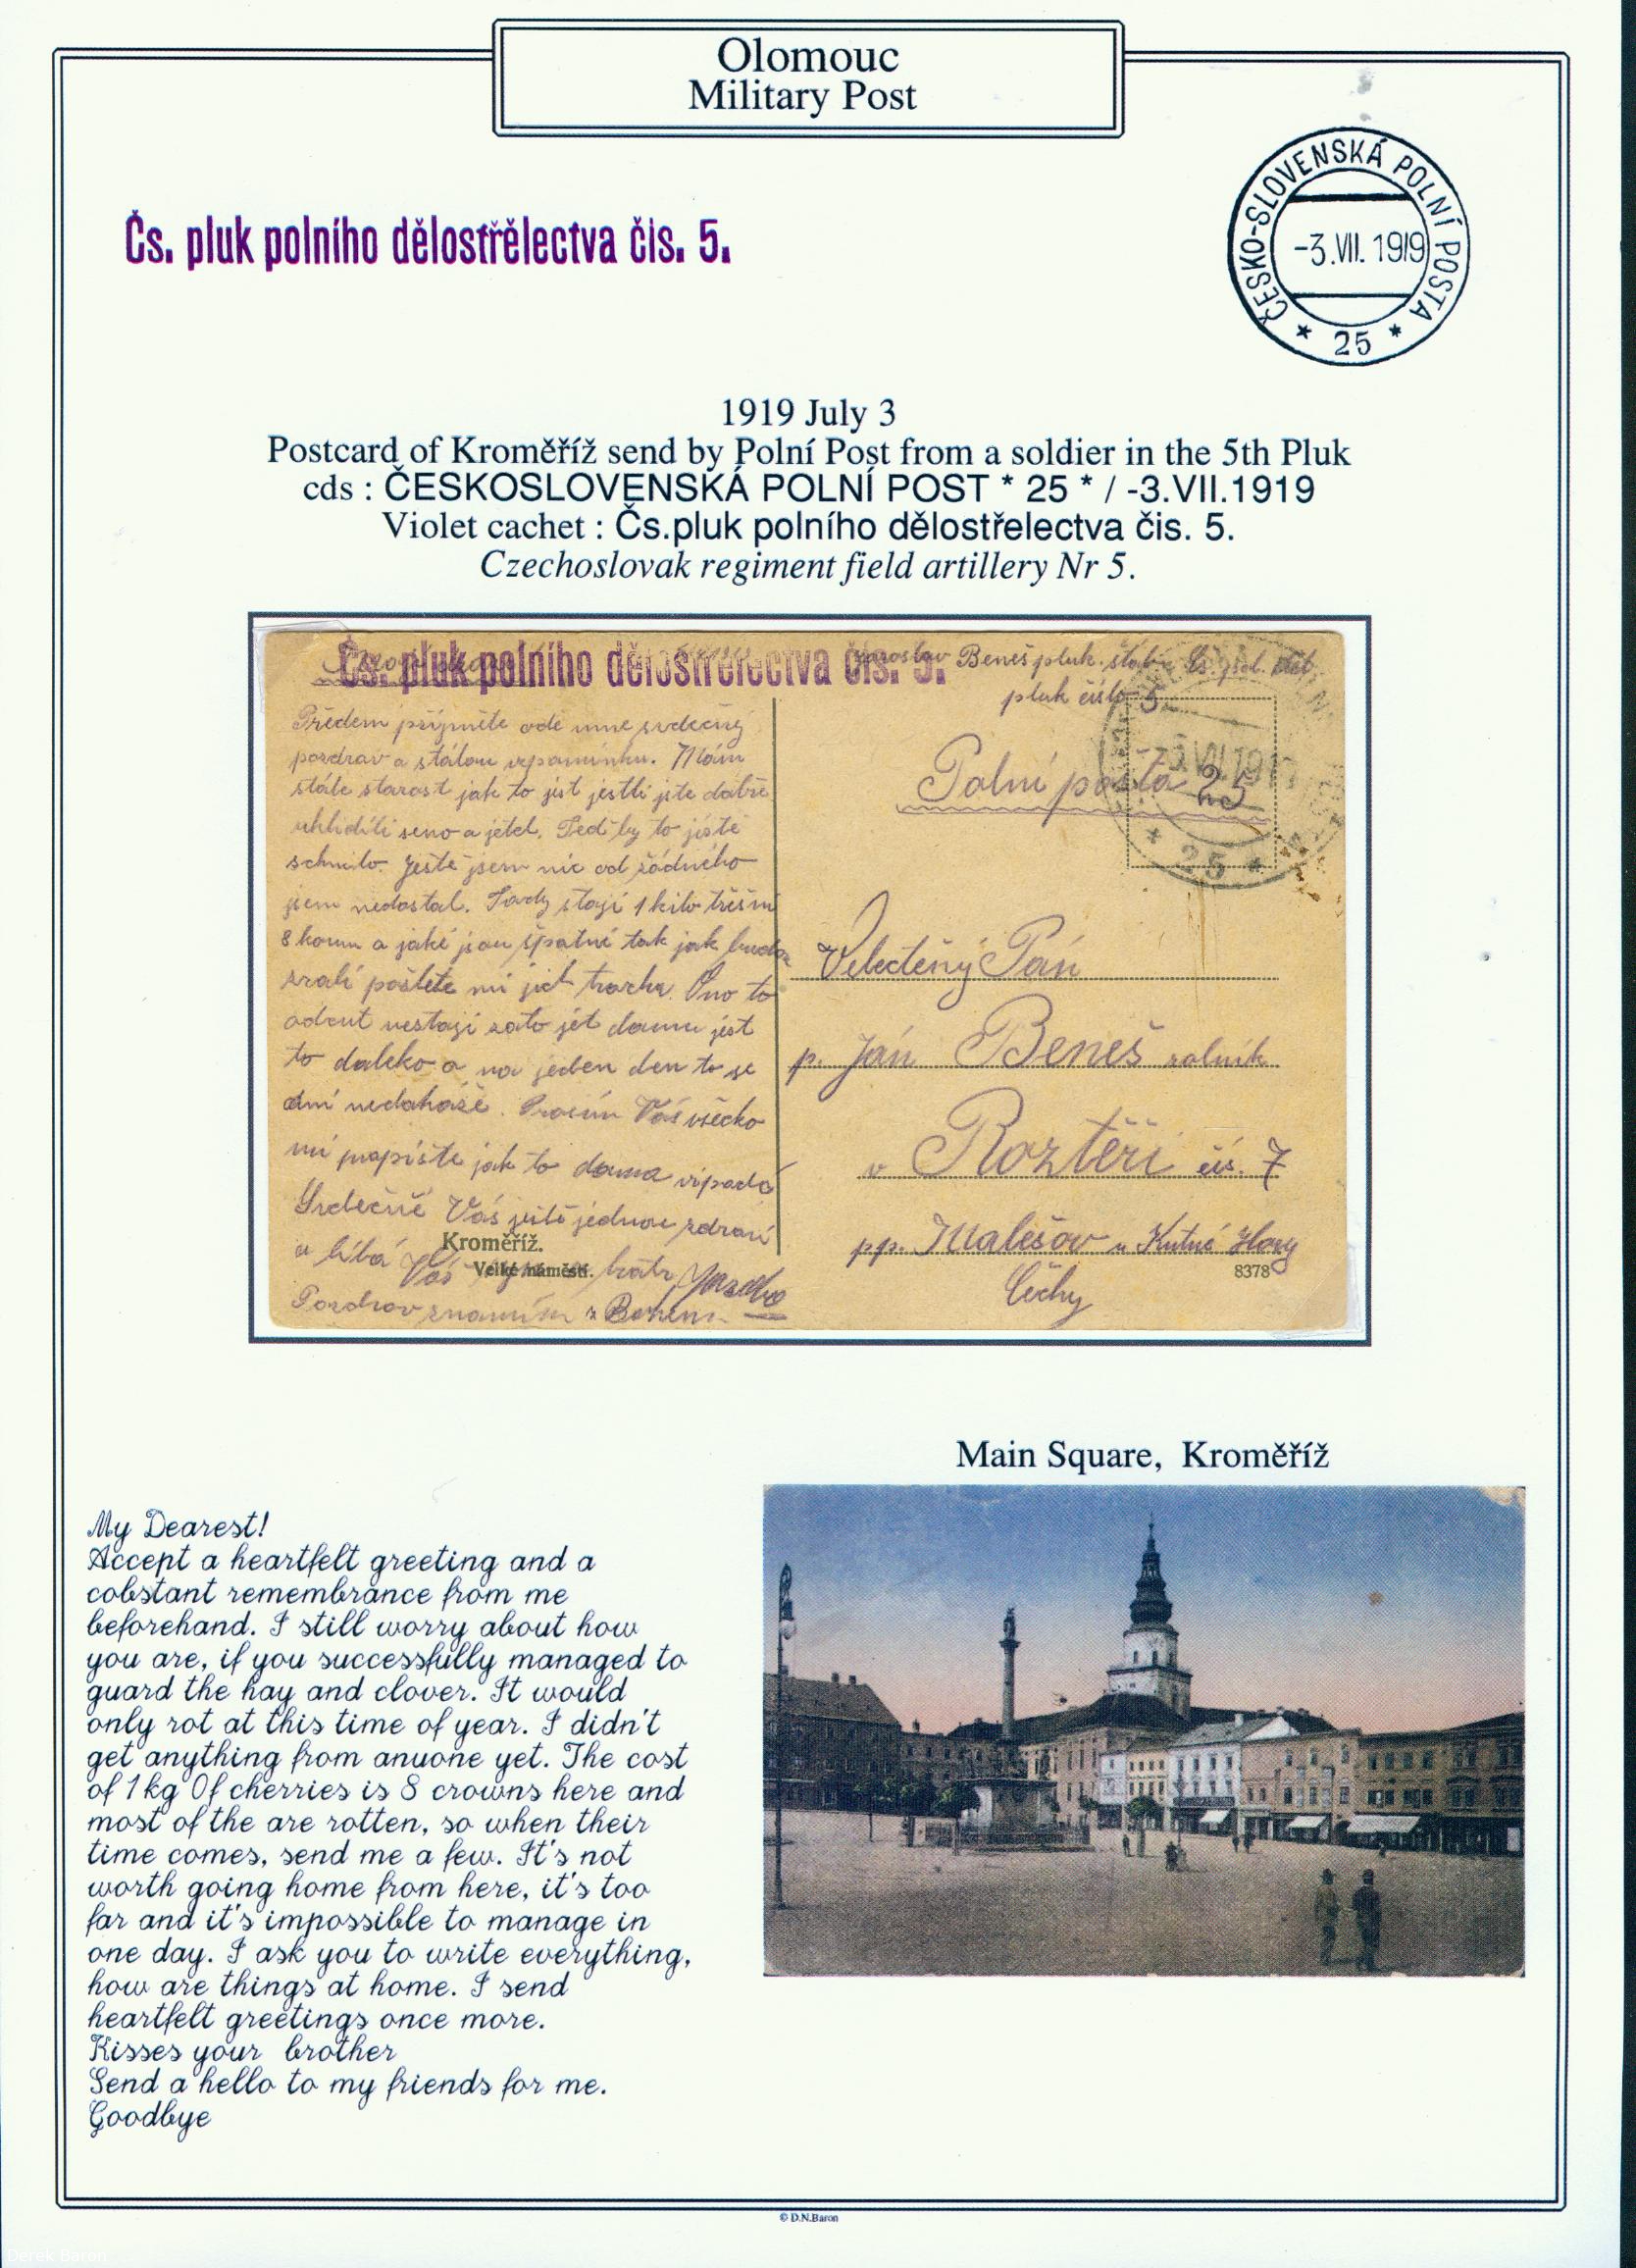 Olomouc
Military Post
Čs. pluk polního dělostřělectva čis. 5.
ČESKO-SLOVENSKÁ POLNÍ POSTA
-3.VII.1919
* 25 *
1919 July 3
Postcard of Kroměříž send by Polní Post from a soldier in the 5th Pluk
cds : ČESKOSLOVENSKÁ POLNÍ POST * 25 * / -3.VII.1919
Violet cachet : Čs.pluk polního dělostřelectva čis. 5.
Czechoslovak regiment field artillery Nr 5.
Čs. pluk polního dělostřelectva čis. 5.
Jaroslav Beneš pluk.
pluk číslo 5.
Polní pošta 25
* 25 *
Předem přijměte ode mne srdečný
pozdrav a stálou vzpomínku. Mám
stále starost jak to jist jestli jste dobře
uhlidili seno a jetel. Teď by to jistě
schnilo. Jestě jsem nic od žádného
jsem nedostal. Tady stojí 1 kilo třešní
8 korun a jaké jsou špatné tak jak budou
zralí pošlete mi jich trochu. Ono to
odcut nestojí zato jet domu jest
to daleko a na jeden den to se
ani nedokáže. Prosím Vás všecko
mi napište jak to doma vipadá
Srdečně Vás ještě jednou zdraví
a líbá Váš bratr
Pozdrav známím
Kroměříž.
Velké náměstí.
Velectěný Pán
p. Ján Beneš rolník
v Roztěři čís. 7
pp. Malešov u Kutné Hory
8378
Čéchy
Main Square, Kroměříž
My Dearest!
Accept a heartfelt greeting and a
cobstant remembrance from me
beforehand. I still worry about how
you are, if you successfully managed to
guard the hay and clover. It would
only rot at this time of year. I didn't
get anything from anuone yet. The cost
of 1 kg Of cherries is 8 crowns here and
most of the are rotten, so when their
time comes, send me a few. It's not
worth going home from here, it's too
far and it's impossible to manage in
one day. I ask you to write everything,
how are things at home. I send
heartfelt greetings once more.
Kisses your brother
Send a hello to my friends for me.
Goodbye
© D.N.Baron
Derek Baron